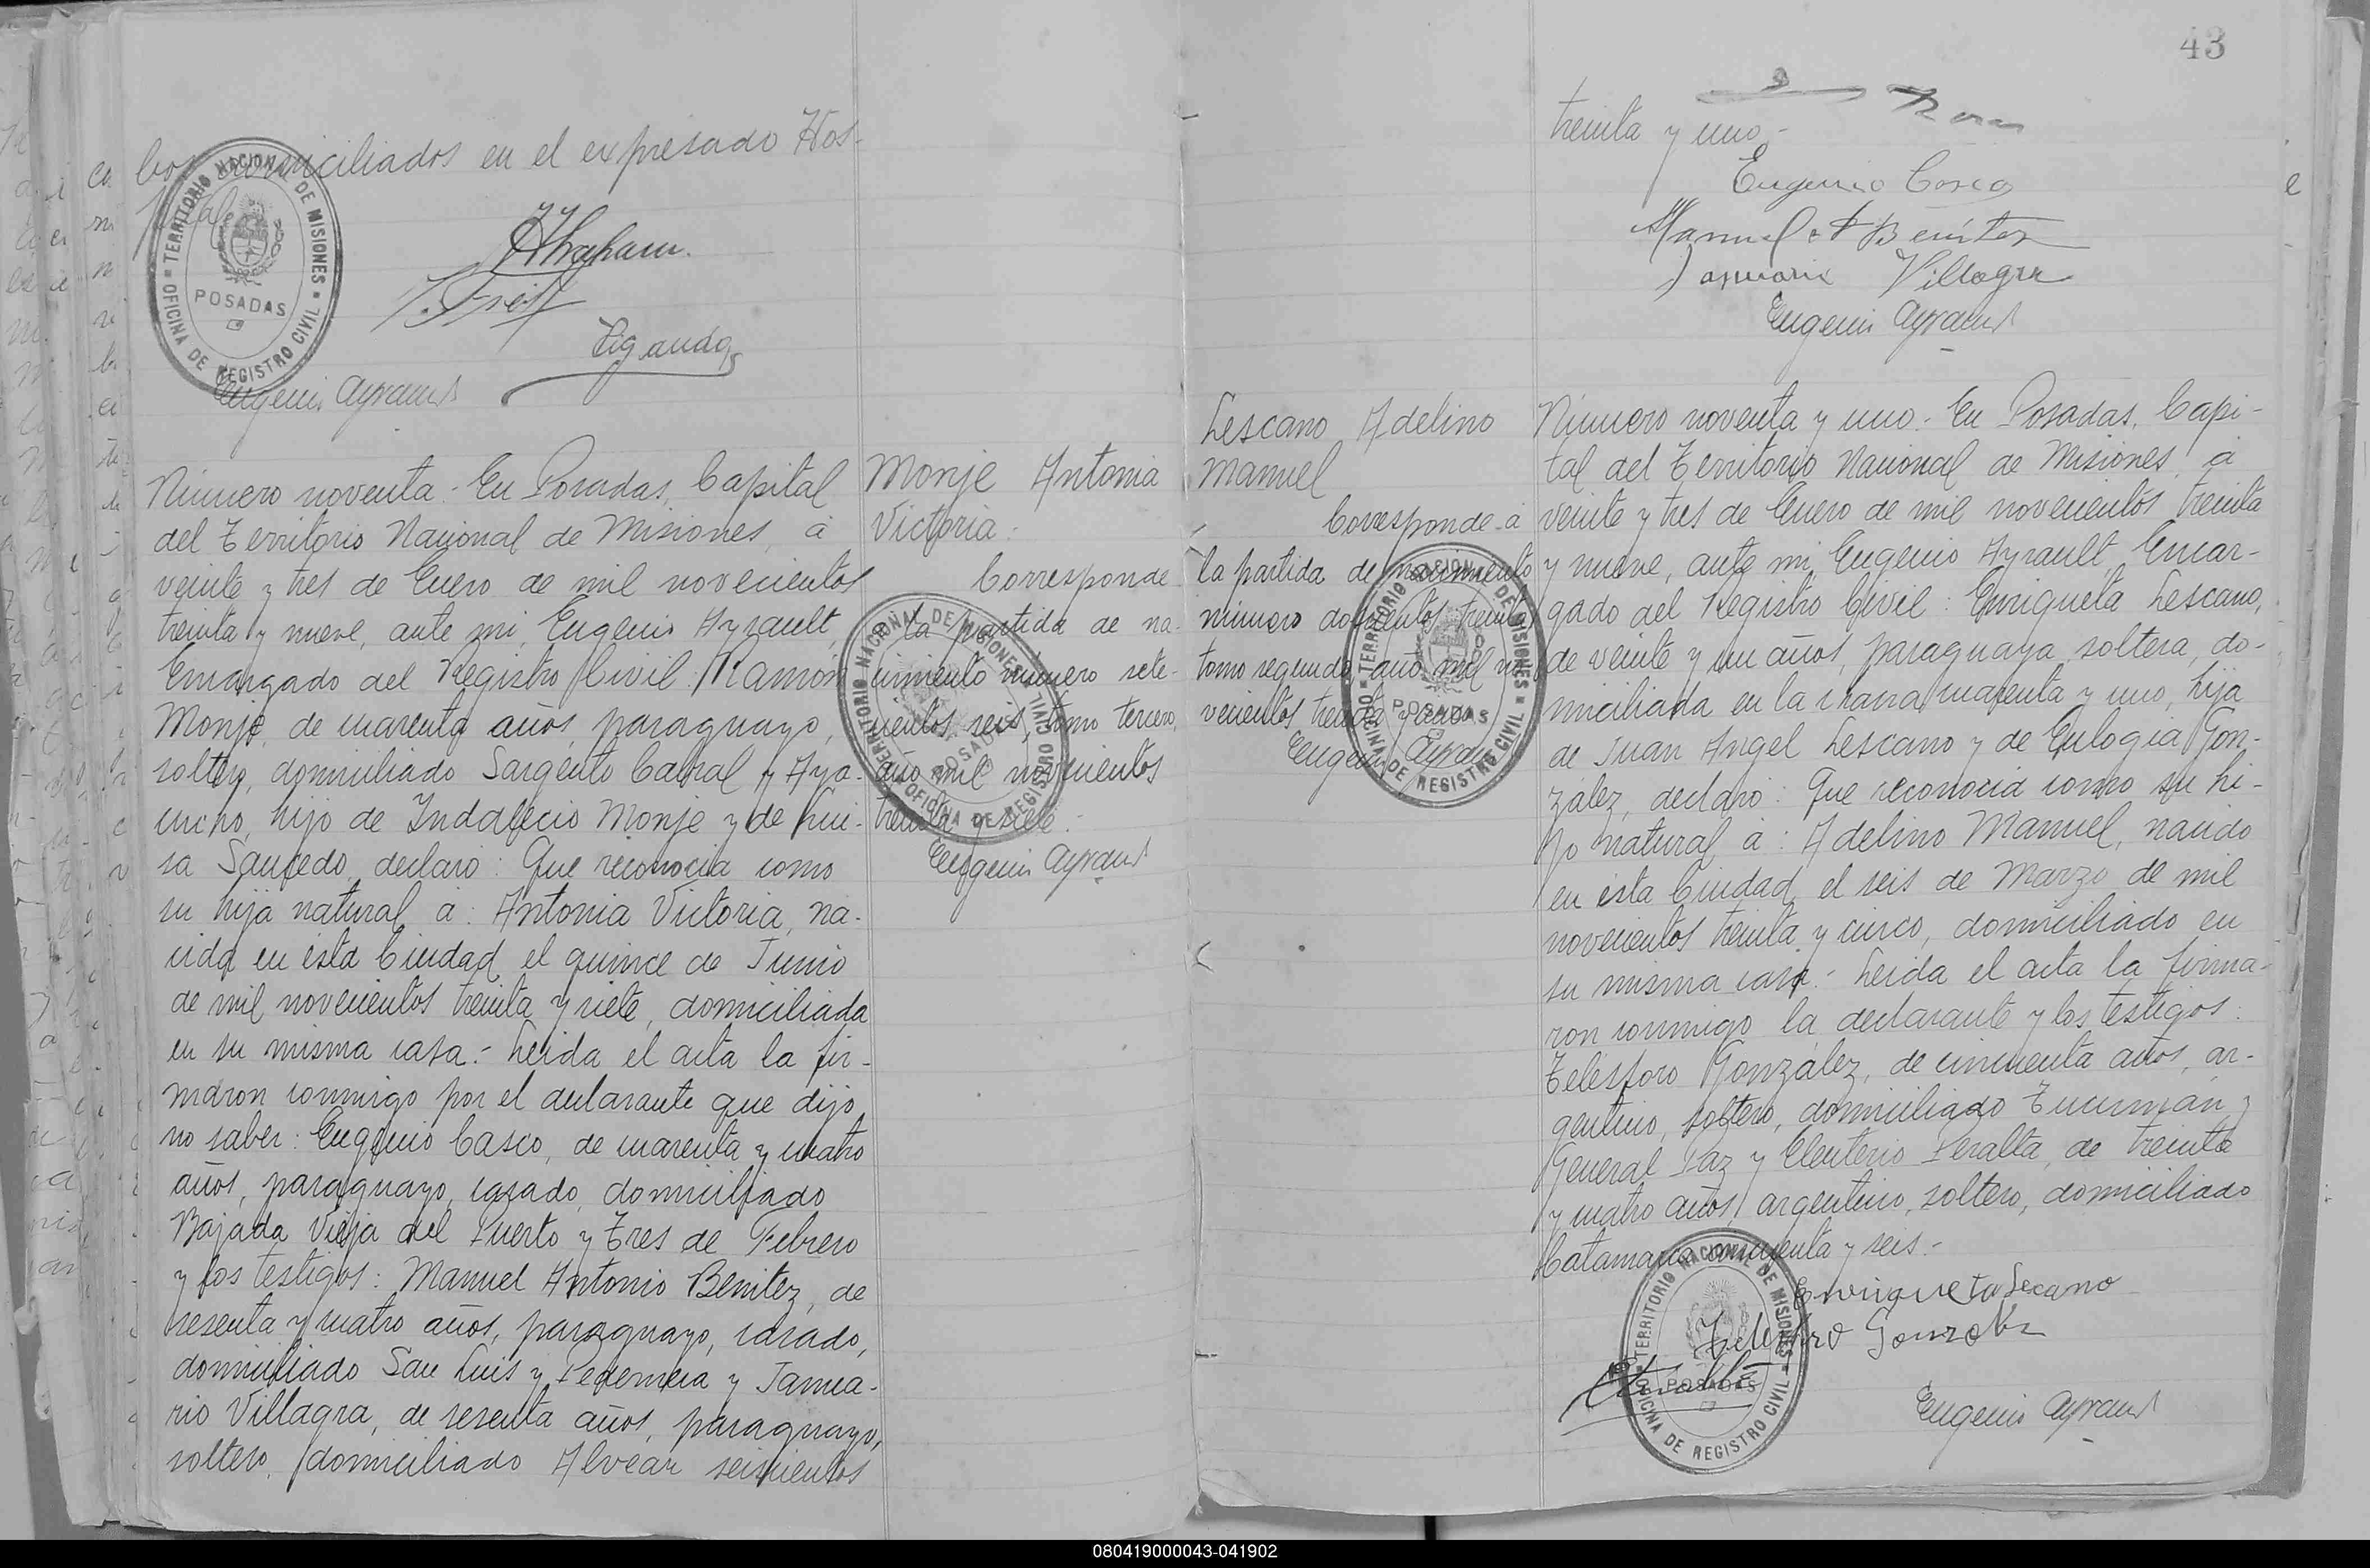 43
bos domiciliados en el expresado Hos-
pital.
Eugenio Ayrault
TERRITORIO NACIONAL DE MISIONES
POSADAS
OFICINA DE REGISTRO CIVIL
Número noventa.- En Posadas, Capital
del Territorio Nacional de Misiones, á
veinte y tres de Enero de mil novecientos
treinta y nueve, ante mi, Eugenio Ayrault,
Encargado del Registro Civil: Ramón
Monje, de cuarenta años, paraguayo,
soltero, domiciliado Sargento Cabral y Aya-
cucho, hijo de Indalecio Monje y de Lui-
sa Saucedo, declaró: Que reconocia como
su hija natural á: Antonia Victoria, na-
cida en esta Ciudad el quince de Junio
de mil novecientos treinta y siete, domiciliada
en su misma casa.- Leida el acta la fir-
maron conmigo por el declarante que dijo
no saber: Eugenio Casco, de cuarenta y cuatro
años, paraguayo, casado, domiciliado
Bajada Vieja del Puerto y Tres de Febrero
y los testigos: Manuel Antonio Benitez, de
sesenta y cuatro años, paraguayo, casado,
domiciliado San Luis y Pedernera y Janua-
rio Villagra, de sesenta años, paraguayo,
soltero, domiciliado Alvear seiscientos
Monje Antonia
Victoria.
Corresponde
a la partida de na-
cimiento número sete-
cientos seis, tomo tercero,
año mil novecientos
treinta y siete.
Eugenio Ayrault
TERRITORIO NACIONAL DE MISIONES
POSADAS
OFICINA DE REGISTRO CIVIL
treinta y uno.-
Eugenio Casco
Manuel A Benítez
Januario Villagra
Eugenio Ayrault
Lescano Adelino
Manuel
Corresponde á
la partida de nacimiento
número doscientos treinta,
tomo segundo, año mil no-
vecientos treinta y
Eugenio Ayrault
TERRITORIO NACIONAL DE MISIONES
POSADAS
OFICINA DE REGISTRO CIVIL
Número noventa y uno.- En Posadas, Capi-
tal del Territorio Nacional de Misiones, á
veinte y tres de Enero de mil novecientos treinta
y nueve, ante mi, Eugenio Ayrault, Encar-
gado del Registro Civil: Enriqueta Lescano,
de veinte y un años, paraguaya, soltera, do-
miciliada en la chacra cuarenta y uno, hija
de Juan Angel Lescano y de Eulogia Gon-
zález, declaró: Que reconocia como su hi-
jo natural á: Adelino Manuel, nacido
en esta Ciudad el seis de Marzo de mil
novecientos treinta y cinco, domiciliado en
su misma casa.- Leida el acta la firma-
ron conmigo la declarante y los testigos:
Telésforo González, de cincuenta años, ar-
gentino, soltero, domiciliado Tucumán y
General Paz y Eleuterio Peralta, de treinta
y cuatro años, argentino, soltero, domiciliado
Catamarca cincuenta y seis.-
Enriqueta Lescano
Telesforo Gonzalez
Eugenio Ayrault
TERRITORIO NACIONAL DE MISIONES
POSADAS
OFICINA DE REGISTRO CIVIL
080419000043-041902